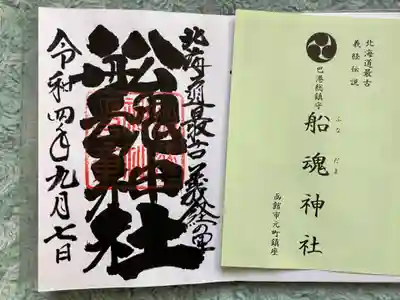 北海道最古
義経伝説
巴港総鎮守
ふなだま
船魂神社
函館市元町鎮座
北海道最古義経の里
舩魂神社
令和四年九月七日